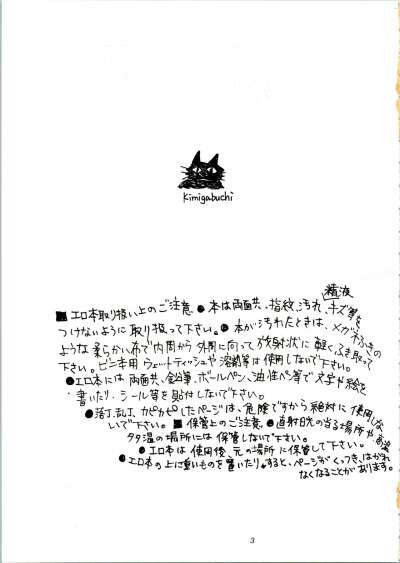 Kimigabuchi
精液
■エロ本取り扱い上のご注意 ●本は両面共、指紋、汚れ、キズ等を
つけないように取り扱って下さい。●本が汚れたときは、メガネふきの
ような柔らかい布で内周から外周に向って放射状に軽くふき取って
下さい。ビニ本用ウェットティッシュや溶剤等は使用しないで下さい。
●エロ本には両面共、鉛筆、ボールペン、油性ペン等で文字や絵を
書いたり、シール等を貼付しないで下さい。
●落丁、乱丁、カピカピしたページは、危険ですから絶対に使用しな
いで下さい。■保管上のご注意 ●直射日光の当る場所や高温
多湿の場所には保管しないで下さい。
●エロ本は使用後、元の場所に保管して下さい。
●エロ本の上に重いものを置いたりすると、ページがくっつき、はがれ
なくなることがあります。
3